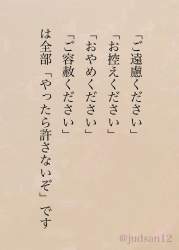 「ご遠慮ください」
「お控えください」
「おやめください」
「ご容赦ください」
は全部「やったら許さないぞ」です
@judsan12